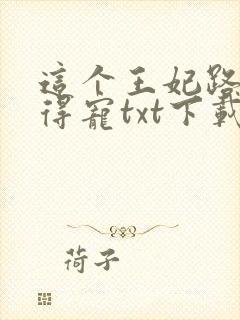 這个王妃路
得寵txt下載
荷子